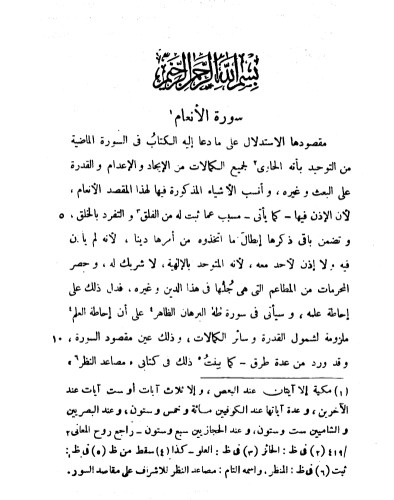 بسم الله الرحمن الرحيم
سورة الأنعام ١
مقصودها الاستدلال على ما دعا إليه الكتابُ فى السورة الماضية
من التوحيد بأنه الحاوى ٢ لجميع الكمالات من الإيجاد و الإعدام و القدرة
على البعث و غيره ، و أنسب الأشياء المذكورة فيها لهذا المقصد الأنعام ،
لأن الإذن فيها – كما يأتى – مسبب عما ثبت له من الفلق ٣ و التفرد بالخلق ، ٥
و تضمن باقى ذكرها إبطال ما اتخذوه من أمرها دينا ، لأنه لم يأذن
فيه و لا إذن لأحد معه ، لأنه المتوحد بالإلهية ، لا شريك له ، و حصر
المحرمات من المطاعم التى هى جُلُّها فى هذا الدين و غيره ، فدل ذلك على
إحاطة علمه ، و سيأتى فى سورة طٰهٰ البرهان الظاهر ٤ على أن إحاطة العلم
ملزومة لشمول القدرة و سائر الكمالات ، و ذلك عين مقصود السورة ، ١٠
و قد ورد من عدة طرق – كما بينتُ ٥ ذلك فى كتابى « مصاعد النظر ٦ »
(١) مكية إلا آيتان عند البعض ، و إلا ثلاث آيات أو ست آيات عند
الآخرين ، و عدة آياتها عند الكوفيين مائة و خمس و ستون ، و عند البصريين
و الشاميين ست و ستون ، و عند الحجازيين سبع و ستون – راجع روح المعانى ٢
/٤١٩ (٢) فى ظ : الحائز (٣) فى ظ : العلو – كذا (٤) سقط من ظ (٥) فى ظ :
ثبت (٦) فى ظ : المنظر . و اسمه التام : مصاعد النظر للاشراف على مقاصد السور.